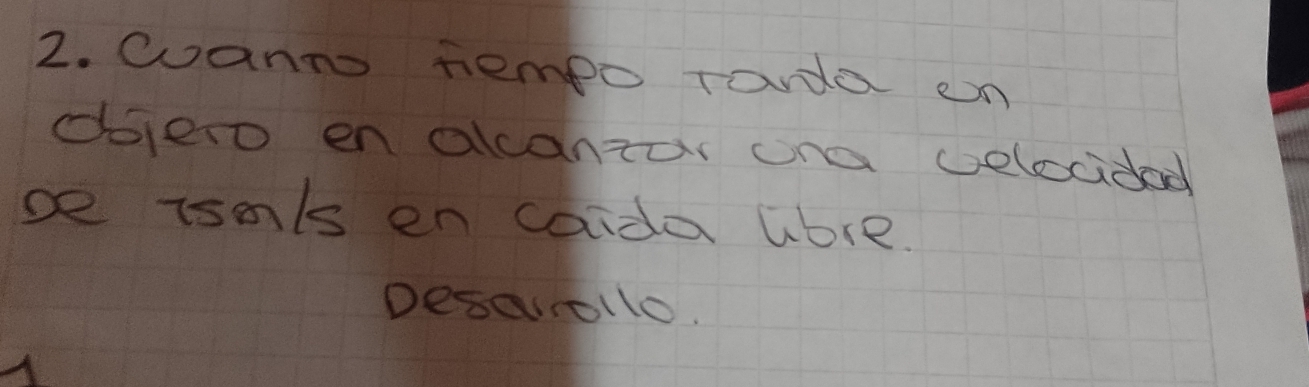 2. Cuanto tiempo tarda en
objeto en alcanzar una velocidad
de 15m/s en caida libre.
Desarrollo.